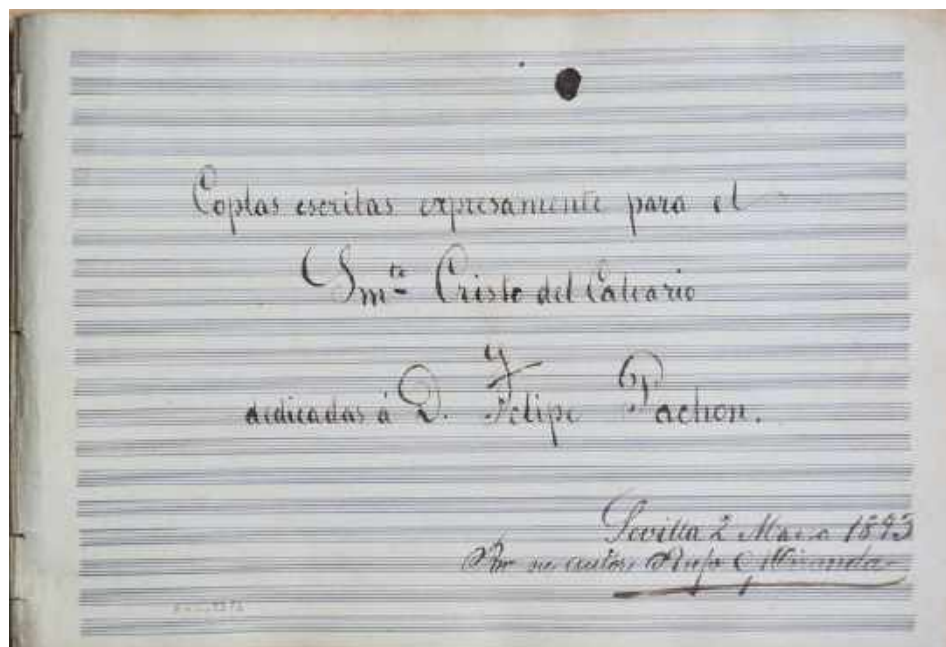 Coplas escritas expresamente para el
Smo. Cristo del Calvario
y
dedicadas á D. Felipe Pachon.
Sevilla 2 Marzo 1893
Por su autor, Rufo Miranda